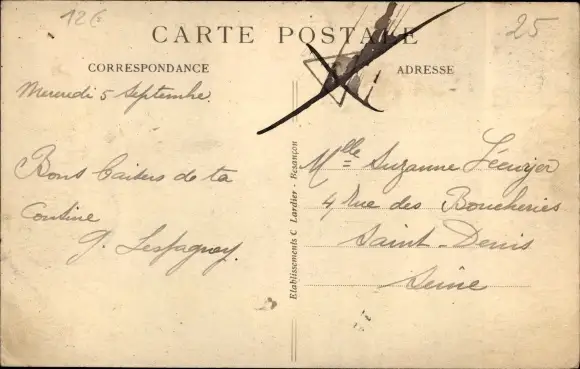 12€
25
CARTE POSTALE
CORRESPONDANCE
ADRESSE
Mercredi 5 Septembre.
Bons baisers de ta
Cousine
G. Lespagnay.
Etablissements C. Lardier - Besançon
Mlle Suzanne Lécuyer
4, Rue des Boucheries
Saint-Denis
Seine